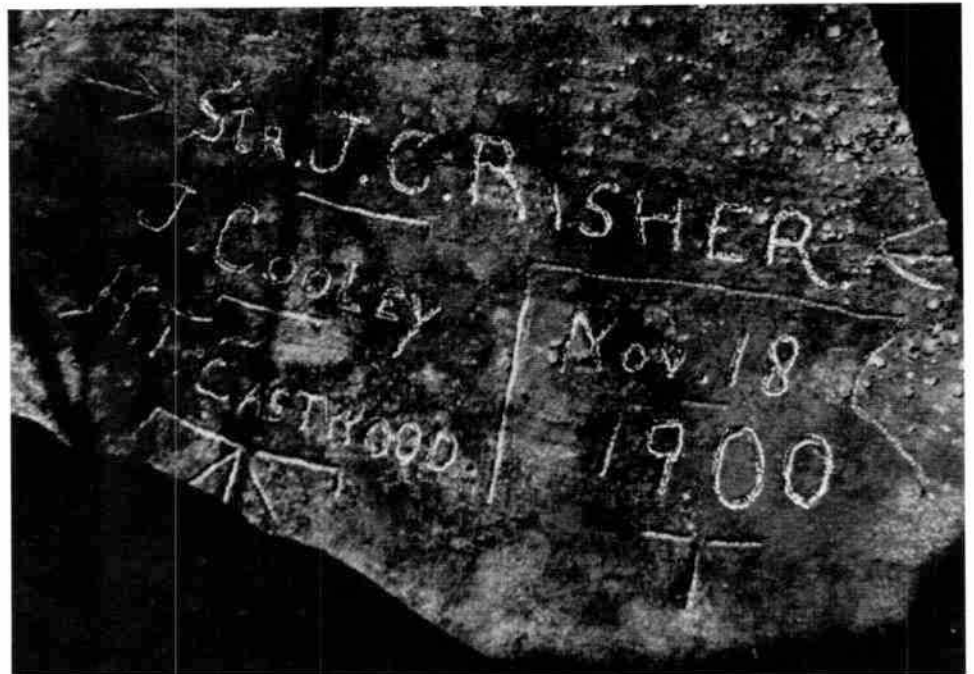 STR. J. C. RISHER.
J. COOLEY
CASTWOOD.
NOV. 18
1900